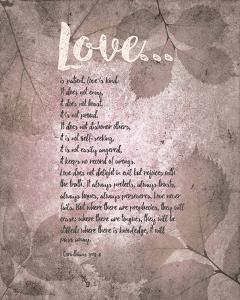 Love...
is patient, love is kind.
It does not envy,
it does not boast,
it is not proud.
It does not dishonor others,
it is not self-seeking,
it is not easily angered,
it keeps no record of wrongs.
Love does not delight in evil but rejoices with
the truth. It always protects, always trusts,
always hopes, always perseveres. Love never
fails. But where there are prophecies, they will
cease; where there are tongues, they will be
stilled; where there is knowledge, it will
pass away.
Corinthians